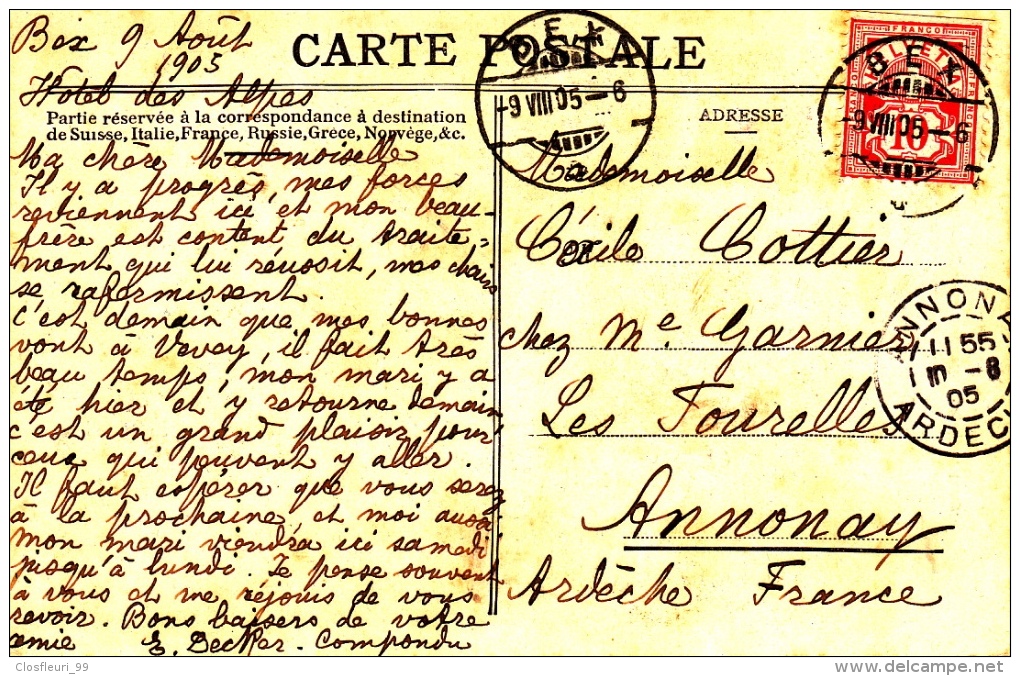 Bex 9 Août
1905
CARTE POSTALE
Hôtel des Alpes
Partie réservée à la correspondance à destination
de Suisse, Italie, France, Russie, Grèce, Norvège, &c.
Ma chère Mademoiselle
Il y a progrès, mes forces
reviennent ici et mon beau-
frère est content du traite=
ment qui lui réussit, mes chairs
se rafermissent.
c'est demain que mes bonnes
vont à Vevey, il fait très
beau temps, mon mari y a
été hier et y retourne demain
c'est un grand plaisir pour
ceux qui peuvent y aller.
Il faut espérer que vous serez
à la prochaine, et moi aussi
mon mari viendra ici samedi
jusqu'à lundi. Je pense souvent
à vous et me réjouis de vous
revoir. Bons baisers de votre
amie E. Decker-Compondu
BEX
-9 VIII 05-6
ADRESSE
FRANCO
HELVETIA
10
BEX
-9 VIII 05-6
Mademoiselle
Cécile Cottier
chez Me Garnier
Les Tourelles
Annonay
Ardèche France
ANNONAY
11 55
10 - 8
05
ARDECH
Closfleuri_99
delcampe.net